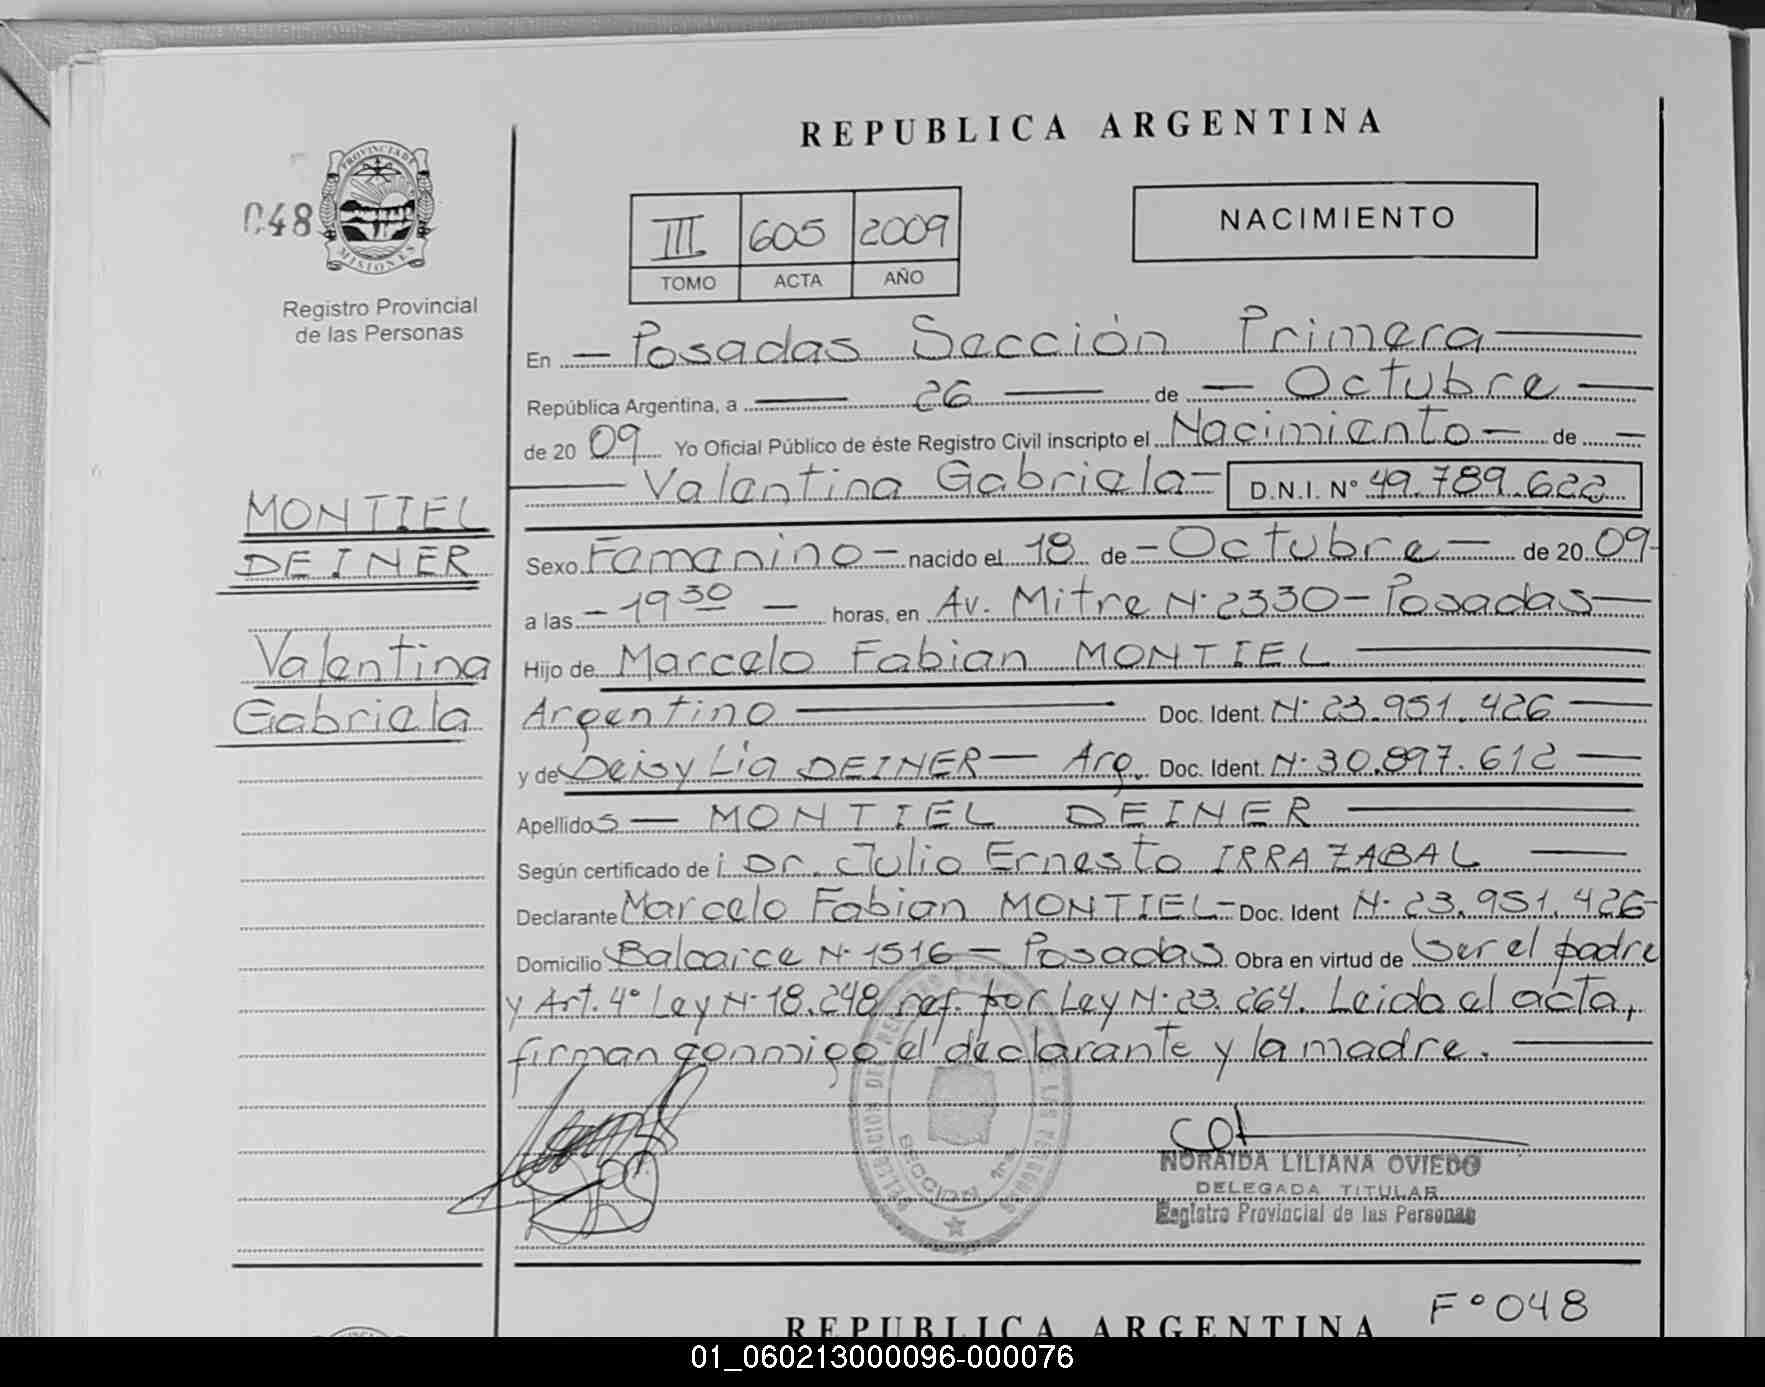 REPUBLICA ARGENTINA
048
PROVINCIA DE
MISIONES
Registro Provincial
de las Personas
III 605 2009
TOMO ACTA AÑO
NACIMIENTO
En — Posadas Sección Primera —
República Argentina, a — 26 — de — Octubre —
de 20 09 Yo Oficial Público de éste Registro Civil inscripto el Nacimiento — de —
— Valentina Gabriela — D.N.I. N° 49.789.622
MONTIEL
DEINER
Valentina
Gabriela
Sexo Femenino — nacido el 18 de — Octubre — de 20 09-
a las — 19 30 — horas, en Av. Mitre N° 2330 — Posadas —
Hijo de Marcelo Fabian MONTIEL —
Argentino — Doc. Ident. N° 23.951.426 —
y de Deisy Lia DEINER — Arg. Doc. Ident. N° 30.897.612 —
Apellidos — MONTIEL DEINER —
Según certificado de: Dr. Julio Ernesto IRRAZABAL —
Declarante Marcelo Fabian MONTIEL- Doc. Ident N° 23.951.426-
Domicilio Balcarce N° 1516 — Posadas. Obra en virtud de Ser el padre
y Art. 4° Ley N° 18.248 ref. por Ley N° 23.264. Leida el acta,
firman conmigo el declarante y la madre. —
SECCION
NORAIDA LILIANA OVIEDO
DELEGADA TITULAR
Registro Provincial de las Personas
F° 048
REPUBLICA ARGENTINA
01_060213000096-000076